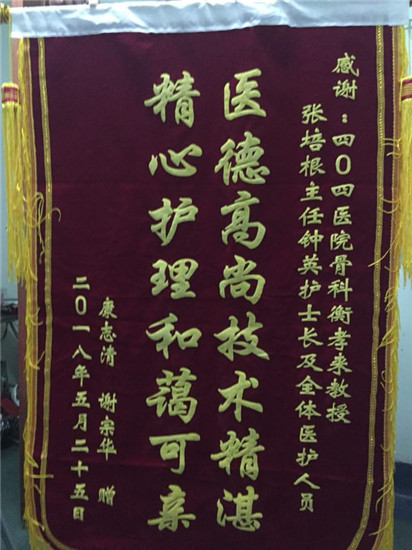 感谢：四〇四医院骨科衡孝来教授
张培根主任钟英护士长及全体医护人员
医德高尚技术精湛
精心护理和蔼可亲
康志清 谢宗华 赠
二〇一八年五月二十五日